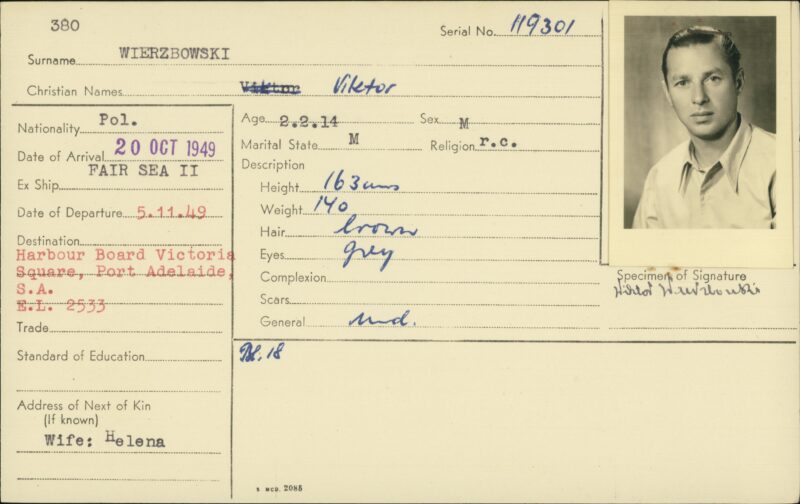 380
Serial No. 119301
Surname WIERZBOWSKI
Christian Names Viktor Viktor
Nationality Pol.
Date of Arrival 20 OCT 1949
Ex Ship FAIR SEA II
Date of Departure 5.11.49
Destination
Harbour Board Victoria
Square, Port Adelaide,
S.A.
E.L. 2533
Trade
Standard of Education
Address of Next of Kin
(If known)
Wife: Helena
Age 2.2.14 Sex M
Marital State M Religion r.c.
Description
Height 163cms
Weight 140
Hair brown
Eyes grey
Complexion
Scars
General Med.
Bl. 18
Specimen of Signature
Wiktor Wierzbowski
S MCD. 2085